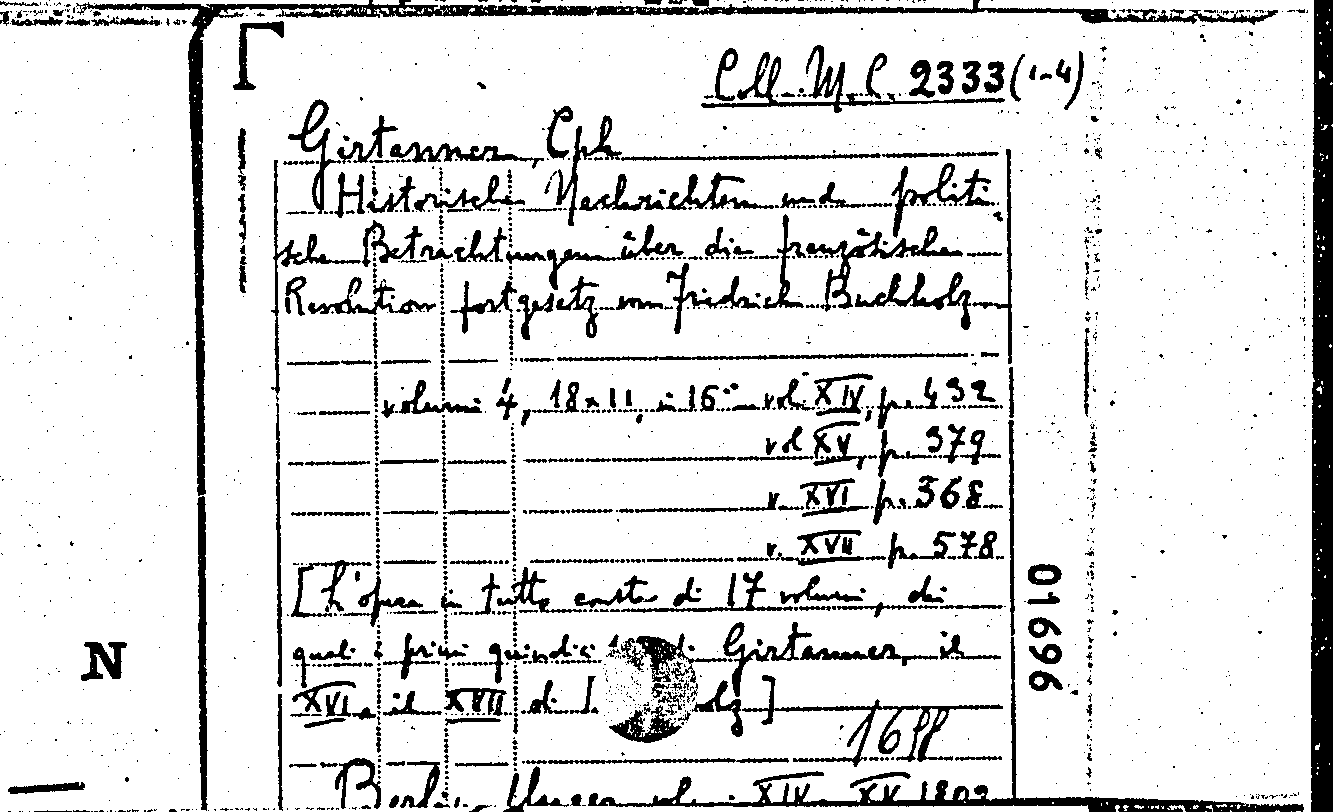 Coll. M.C. 2333(1-4)
Girtanner, Cph
Historische Nachrichten und politi
sche Betrachtungen über die französische
Revolution fortgesetz von Friedrich Buchholz
volumi 4, 18×11, in 16° vol. XIV, p. 432
vol XV, p. 379
v. XVI p. 368
v. XVII p. 578
[L'opera in tutto consta di 17 volumi, dei
quali i primi quindici di Girtanner, il
XVI e il XVII di [ olz]
01696
N
Berlin, Unger vol. XIV XV 1802